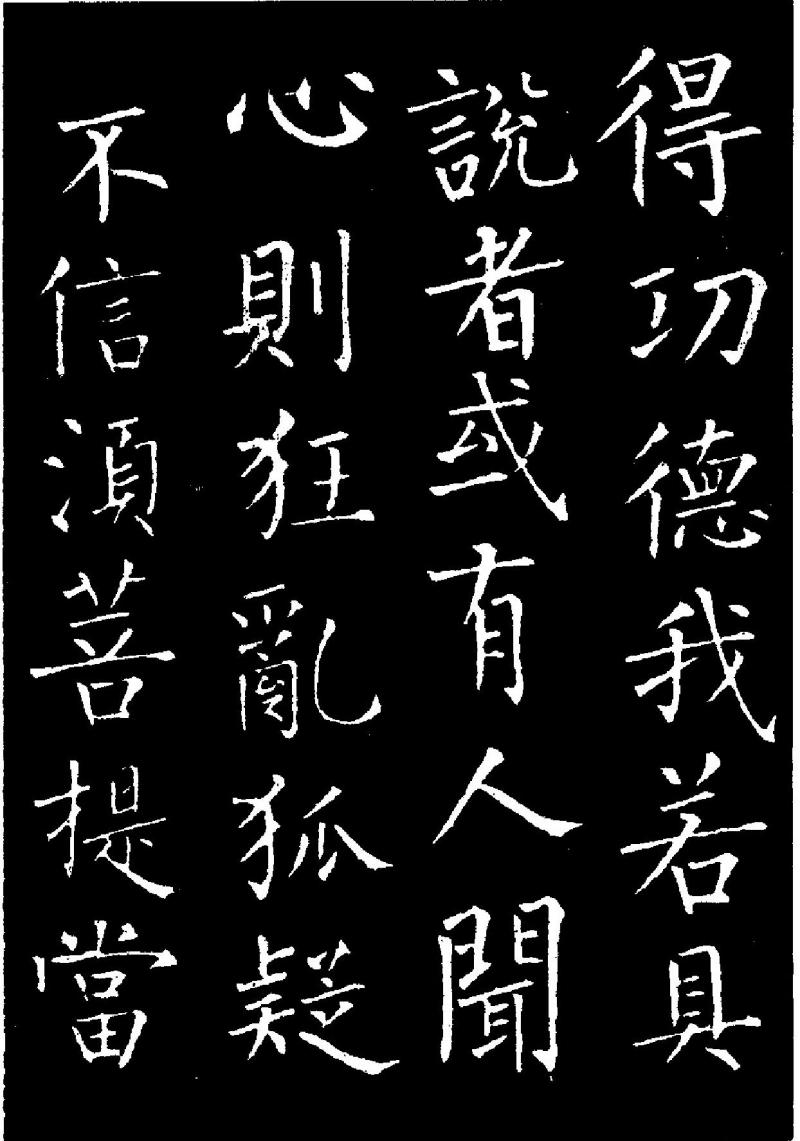 得功德我若具
說者或有人聞
心則狂亂狐疑
不信湏菩提當